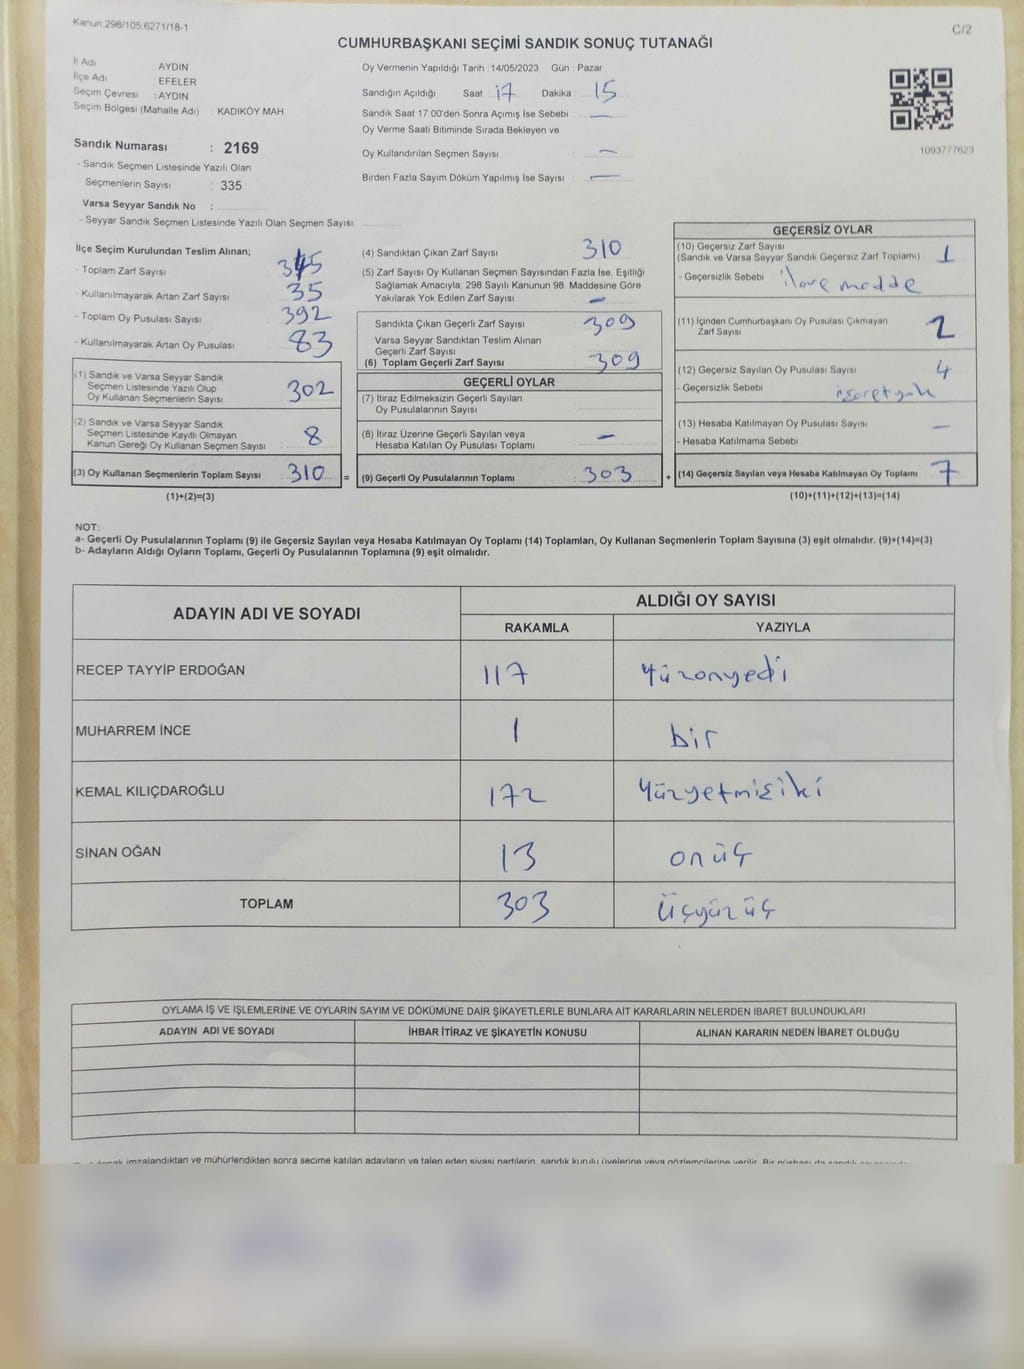 Kanun 298/105,6271/18-1
C/2
CUMHURBAŞKANI SEÇİMİ SANDIK SONUÇ TUTANAĞI
İl Adı AYDIN
İlçe Adı : EFELER
Seçim Çevresi : AYDIN
Seçim Bölgesi (Mahalle Adı) : KADIKÖY MAH.
Sandık Numarası : 2169
- Sandık Seçmen Listesinde Yazılı Olan
Seçmenlerin Sayısı : 335
Varsa Seyyar Sandık No :
- Seyyar Sandık Seçmen Listesinde Yazılı Olan Seçmen Sayısı:
Oy Vermenin Yapıldığı Tarih : 14/05/2023 Gün : Pazar
Sandığın Açıldığı Saat : 17 Dakika : 15
Sandık Saat 17:00'den Sonra Açımış İse Sebebi : —
Oy Verme Saati Bitiminde Sırada Bekleyen ve
Oy Kullandırılan Seçmen Sayısı : —
Birden Fazla Sayım Döküm Yapılmış İse Sayısı : —
1093777623
İlçe Seçim Kurulundan Teslim Alınan;
- Toplam Zarf Sayısı : 345
- Kullanılmayarak Artan Zarf Sayısı : 35
- Toplam Oy Pusulası Sayısı : 392
- Kullanılmayarak Artan Oy Pusulası : 83
(1) Sandık ve Varsa Seyyar Sandık
Seçmen Listesinde Yazılı Olup
Oy Kullanan Seçmenlerin Sayısı : 302
(2) Sandık ve Varsa Seyyar Sandık
Seçmen Listesinde Kayıtlı Olmayan
Kanun Gereği Oy Kullanan Seçmen Sayısı : 8
(3) Oy Kullanan Seçmenlerin Toplam Sayısı : 310 =
(1)+(2)=(3)
(4) Sandıktan Çıkan Zarf Sayısı : 310
(5) Zarf Sayısı Oy Kullanan Seçmen Sayısından Fazla İse, Eşitliği
Sağlamak Amacıyla, 298 Sayılı Kanunun 98. Maddesine Göre
Yakılarak Yok Edilen Zarf Sayısı : —
Sandıkta Çıkan Geçerli Zarf Sayısı : 309
Varsa Seyyar Sandıktan Teslim Alınan
Geçerli Zarf Sayısı
(6) Toplam Geçerli Zarf Sayısı : 309
GEÇERLİ OYLAR
(7) İtiraz Edilmeksizin Geçerli Sayılan
Oy Pusulalarının Sayısı :
(8) İtiraz Üzerine Geçerli Sayılan veya
Hesaba Katılan Oy Pusulası Toplamı : —
(9) Geçerli Oy Pusulalarının Toplamı : 303 +
GEÇERSİZ OYLAR
(10) Geçersiz Zarf Sayısı
(Sandık ve Varsa Seyyar Sandık Geçersiz Zarf Toplamı) : 1
- Geçersizlik Sebebi : ilave madde
(11) İçinden Cumhurbaşkanı Oy Pusulası Çıkmayan
Zarf Sayısı : 2
(12) Geçersiz Sayılan Oy Pusulası Sayısı : 4
- Geçersizlik Sebebi : işaret yok
(13) Hesaba Katılmayan Oy Pusulası Sayısı : —
- Hesaba Katılmama Sebebi :
(14) Geçersiz Sayılan veya Hesaba Katılmayan Oy Toplamı : 7
(10)+(11)+(12)+(13)=(14)
NOT:
a- Geçerli Oy Pusulalarının Toplamı (9) ile Geçersiz Sayılan veya Hesaba Katılmayan Oy Toplamı (14) Toplamları, Oy Kullanan Seçmenlerin Toplam Sayısına (3) eşit olmalıdır. (9)+(14)=(3)
b- Adayların Aldığı Oyların Toplamı, Geçerli Oy Pusulalarının Toplamına (9) eşit olmalıdır.
ADAYIN ADI VE SOYADI
ALDIĞI OY SAYISI
RAKAMLA YAZIYLA
RECEP TAYYİP ERDOĞAN 117 yüzonyedi
MUHARREM İNCE 1 bir
KEMAL KILIÇDAROĞLU 172 yüzyetmişiki
SİNAN OĞAN 13 onüç
TOPLAM 303 üçyüzüç
OYLAMA İŞ VE İŞLEMLERİNE VE OYLARIN SAYIM VE DÖKÜMÜNE DAİR ŞİKAYETLERLE BUNLARA AİT KARARLARIN NELERDEN İBARET BULUNDUKLARI
ADAYIN ADI VE SOYADI İHBAR İTİRAZ VE ŞİKAYETİN KONUSU ALINAN KARARIN NEDEN İBARET OLDUĞU
imzalandıktan ve mühürlendikten sonra seçime katılan adayların ve talep eden siyasi partilerin, sandık kurulu üyelerine veya gözlemcilerine verilir. Bir